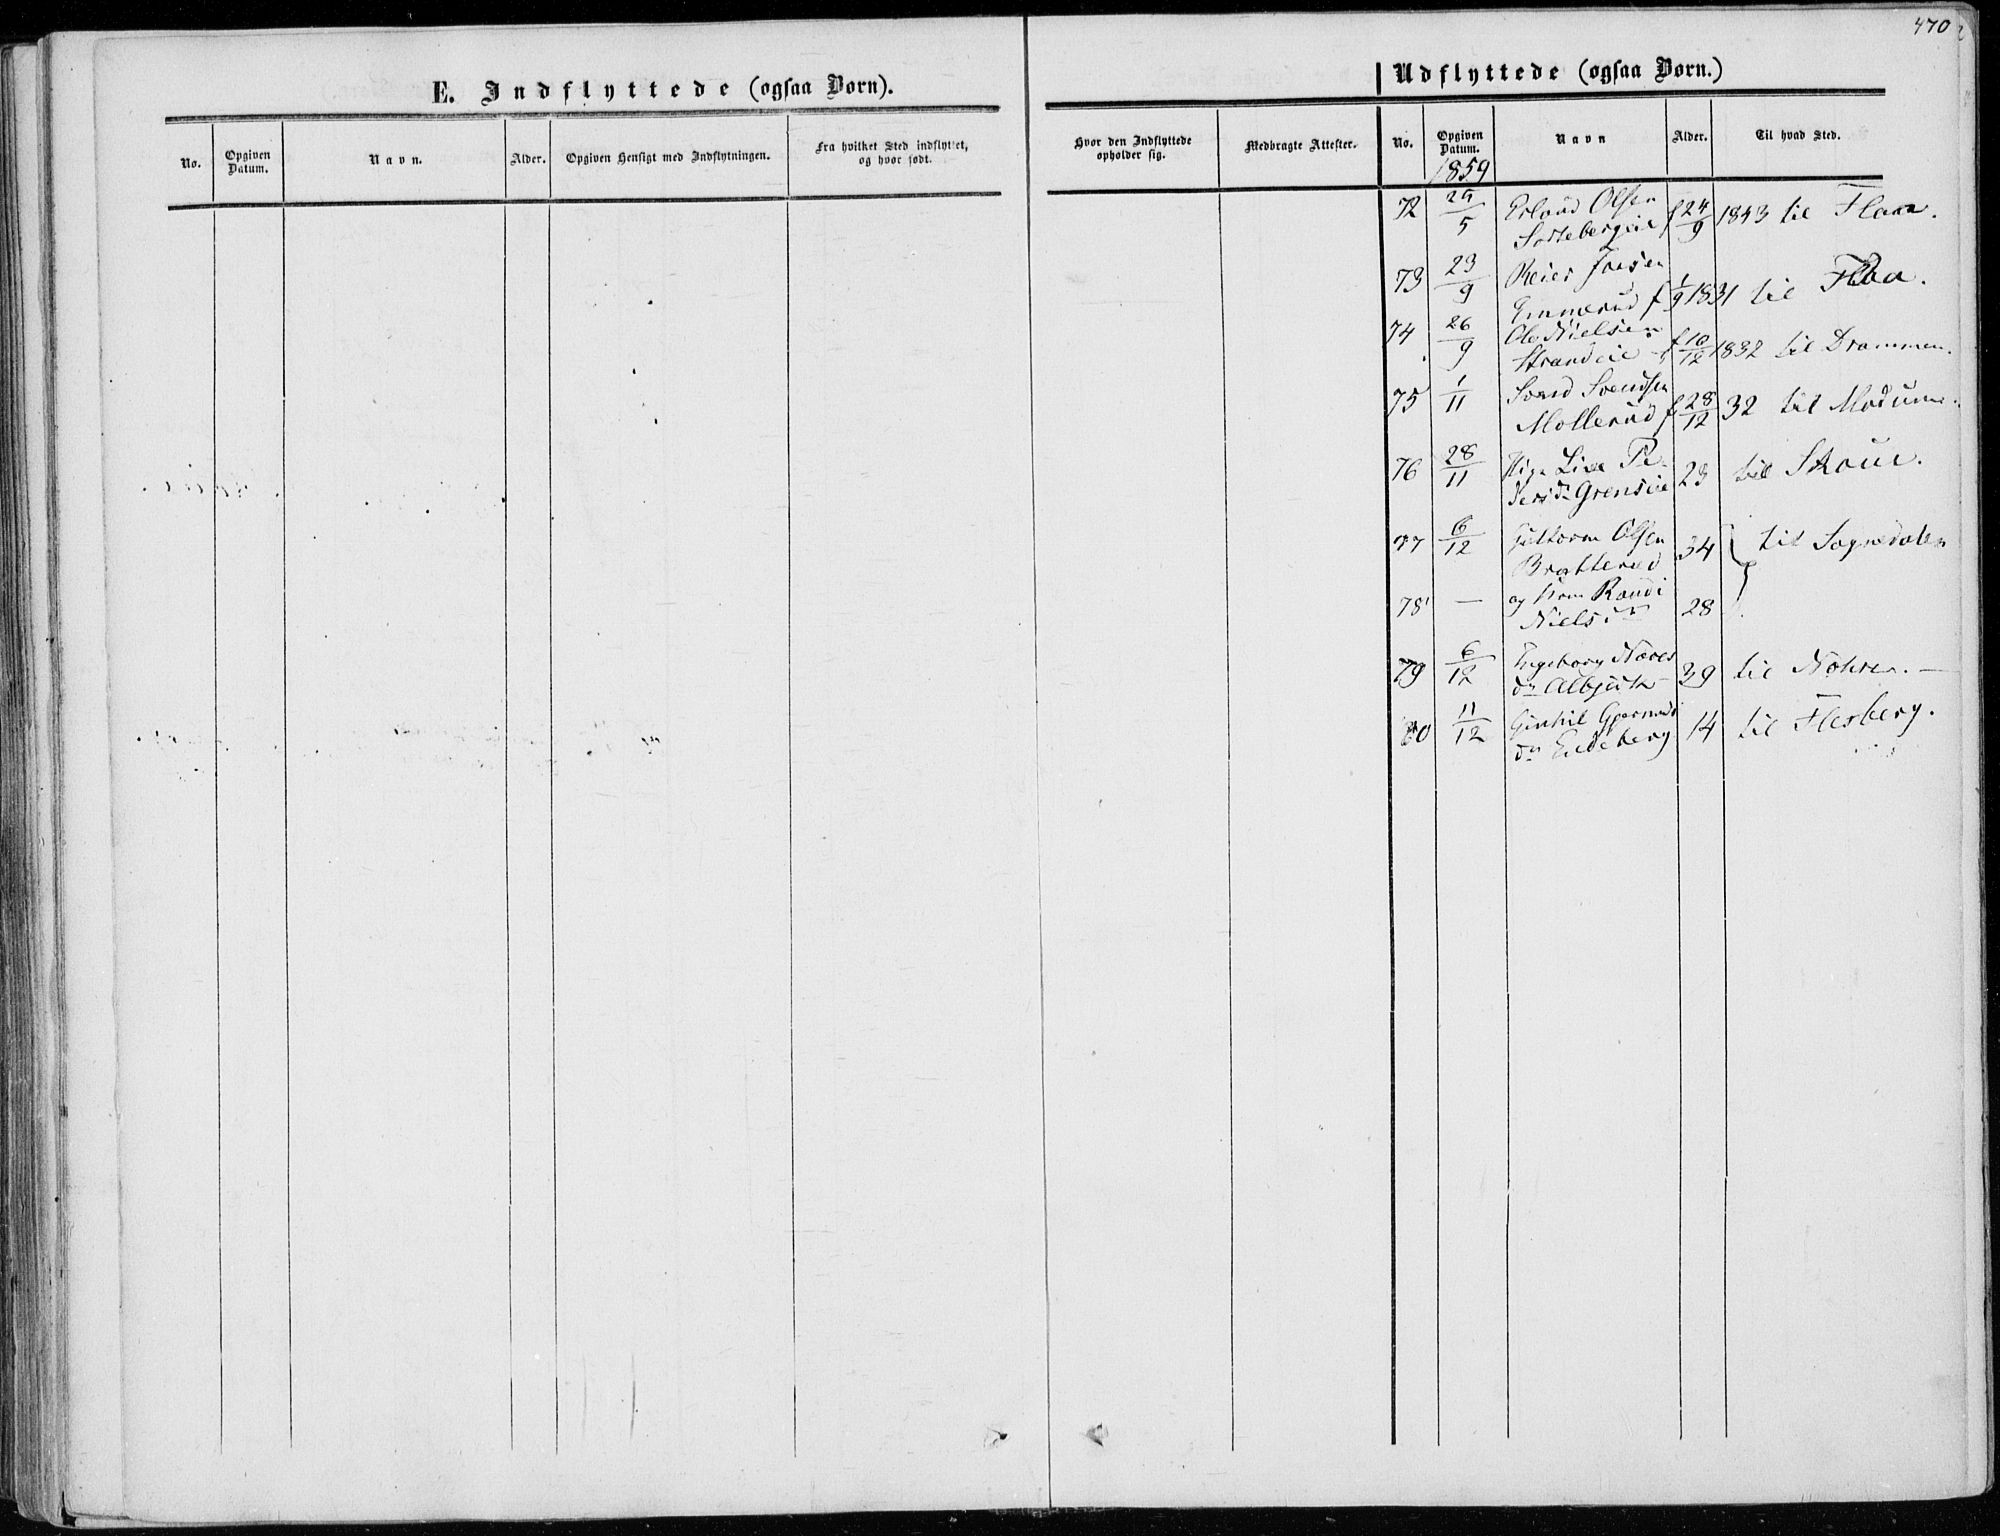 470
E. Indflyttede (ogsaa Børn).
No. Opgiven Datum. Navn. Alder. Opgiven Hensigt med Indflytningen. Fra hvilket Sted indflyttet, og hvor født.
Hvor den Indflyttede opholder sig. Medbragte Attester.
Udflyttede (ogsaa Børn.)
No. Opgiven Datum. Navn Alder. Til hvad Sted.
1859
72 29/5 Erland Olsen
f 24/9 1843 til Flaa.
73 23/9 Reier
Emmerud f 1/9 1831 til Flaa.
74 26/9 Ole Nielsen
Strandeie f 10/12 1832 til Drammen.
75 1/11 Svend Svendsen
Mollerud f 28/12 32 til Modum.
76 28/11 Pige Live Pe-
dersdr Grenseie 23 til Skoue.
77 6/12 Guttorm Olsen
Bratterud 34 til Sognedalen
78 — og Kone Randi
Nielsdr 28
79 6/12 Ingeborg
dr 39 til Nohre. —
80 11/12 Gunhil
dr Eideberg 14 til Flesberg.